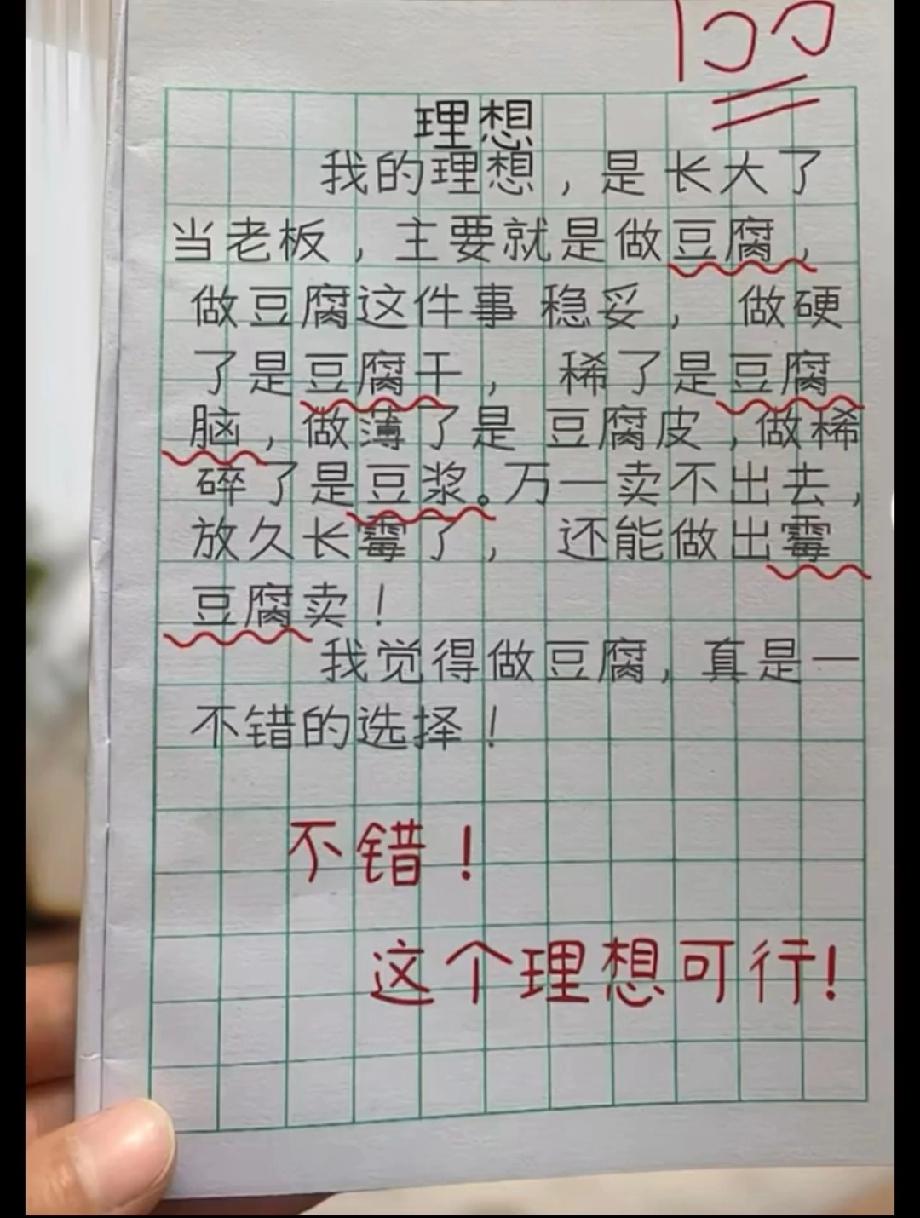 100
理想
我的理想，是长大了
当老板，主要就是做豆腐，
做豆腐这件事稳妥，做硬
了是豆腐干，稀了是豆腐
脑，做薄了是豆腐皮，做稀
碎了是豆浆。万一卖不出去，
放久长霉了，还能做出霉
豆腐卖！
我觉得做豆腐，真是一
不错的选择！
不错！
这个理想可行！